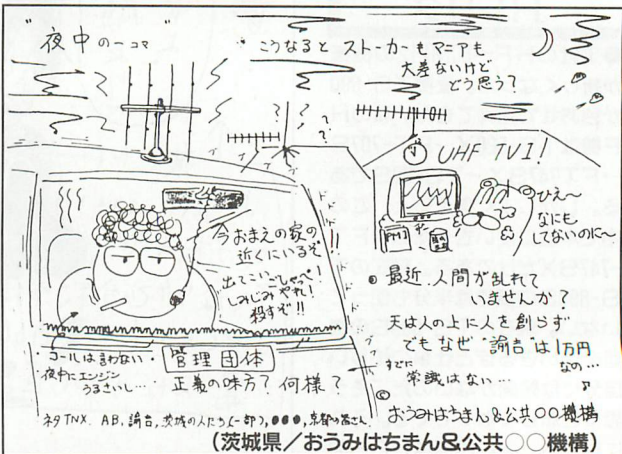 "夜中の一コマ"
* こうなると ストーカーもマニアも
大差ないけど
どう思う?
UHF TVI!
ひえ〜
なにも
してないのに〜
今おまえの家の
近くにいるぞ
出てこい
しみじみやれ!
殺すぞ!!
・コールは言わない
・夜中にエンジン
うるさいし…
管理団体
正義の味方? 何様?
すでに
常識はない…
◎ 最近 人間が乱れて
いませんか?
天は人の上に人を創らず
でもなぜ"諭吉"は1万円
なの…
© おうみはちまん&公共○○機構
ネタTNX. AB, 諭吉, 茨城の人たち(一部う), ●●●, 京都の皆さん
(茨城県/おうみはちまん&公共○○機構)